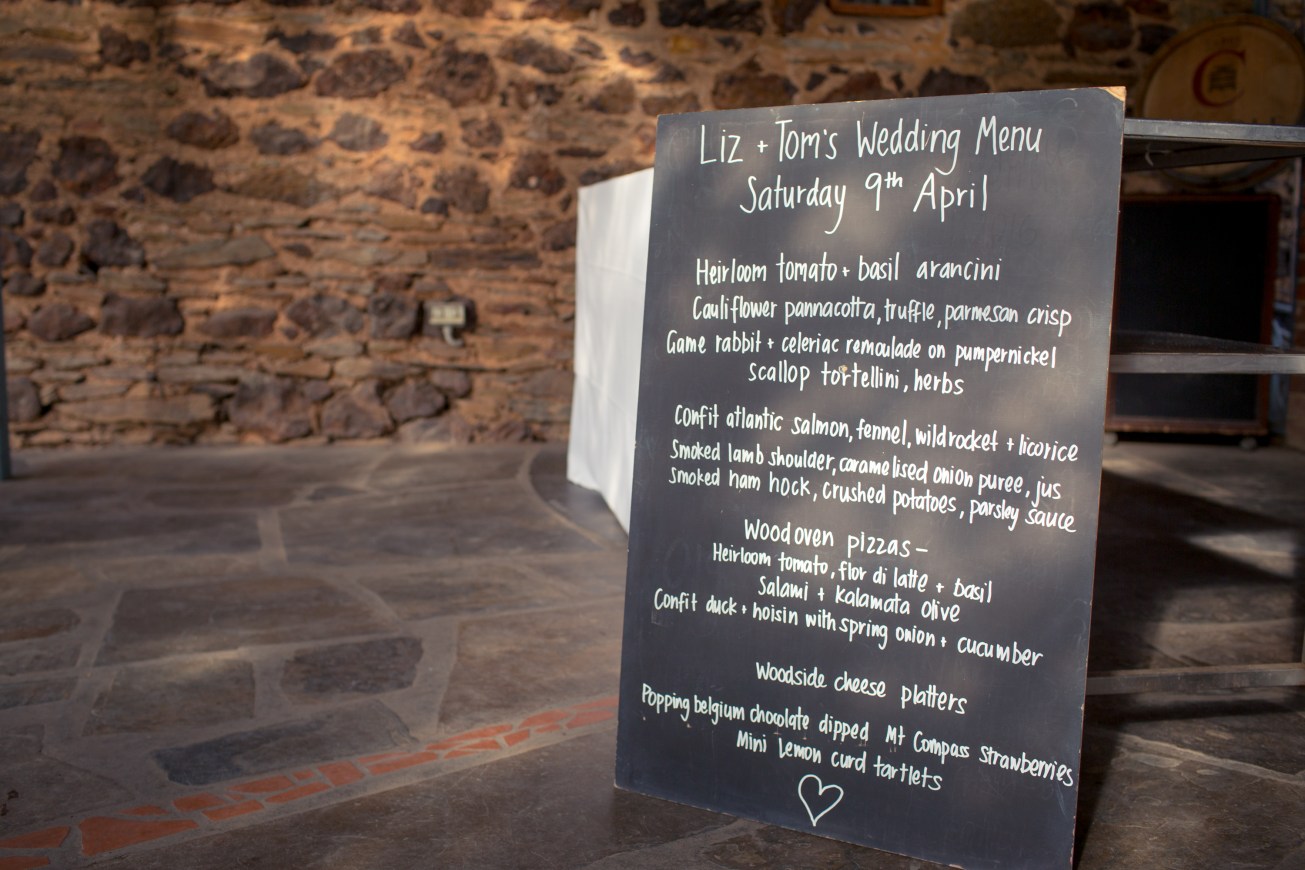 Liz + Tom's Wedding Menu
Saturday 9th April
Heirloom tomato + basil arancini
Cauliflower pannacotta, truffle, parmesan crisp
Game rabbit + celeriac remoulade on pumpernickel
scallop tortellini, herbs
Confit atlantic salmon, fennel, wild rocket + licorice
Smoked lamb shoulder, caramelised onion puree, jus
Smoked ham hock, crushed potatoes, parsley sauce
Wood oven pizzas-
Heirloom tomato, flor di latte + basil
Salami + kalamata olive
Confit duck + hoisin with spring onion + cucumber
Woodside cheese platters
Popping belgium chocolate dipped Mt Compass Strawberries
Mini Lemon curd tartlets
C